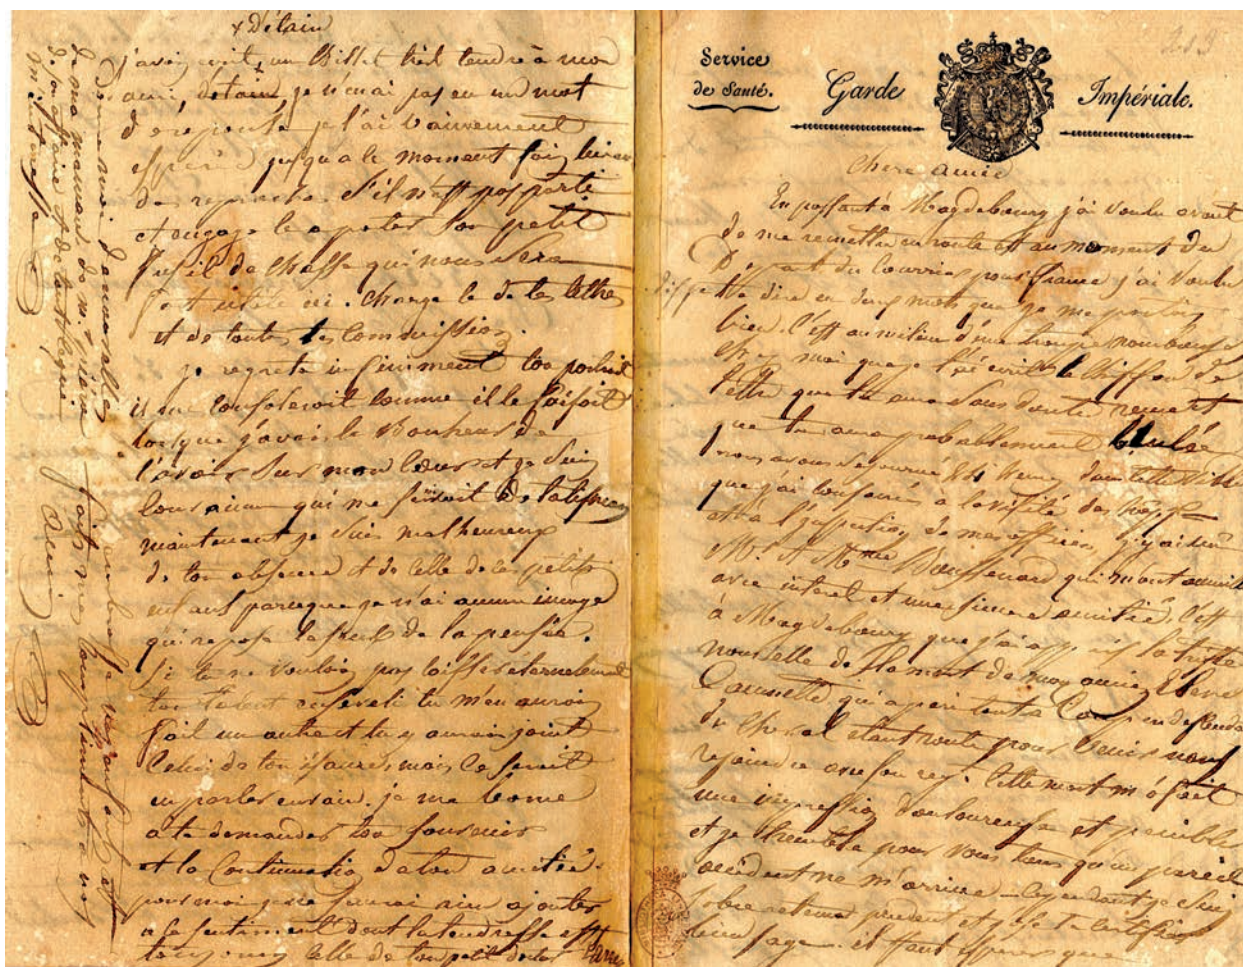 + Détain
j'avois écrit un Billet très tendre à mon
ami, détain, je n'en ai pas eu un mot
de reponse, je l'ai vainement
espéré jusqu'à le moment fais lui
de reproche s'il n'est pas parti
et engage le a porter son petit
fusil de chasse qui nous sera
fort utile ici. charge le de tes lettres
et de toutes tes commissions.
je regrete infiniment ton portrait
il me consoleroit comme il le faisoit
lorsque j'avois le Bonheur de
l'avoir sur mon Coeur et je suis
maintenant je suis malheureux
de ton absence et de celle de ces petits
enfans parceque je n'ai aucune image
qui repose de la pensée.
Si tu ne voulois pas laisser éternelement
ton talent enseveli tu m'en aurois
fait un autre et tu y aurois joint
celui de ton isaure, mais ce seroit
en parler en vain. je me borne
a te demander ton souvenir
et la Continuation de ton amitié.
pour moi je ne saurai rien ajouter
a le sentiment dont la tendresse est
toujours celle de ton petit
Donne moi de nouvelles
de ma maman, de m.
de son affaire et de tout ce qui
m'interesse
embrasse nos enfants et
faits mes Compliments à nos
amis
Service
de Santé.
Garde
Impériale.
213
Chere amie
En passant à Magdebourg j'ai voulu avant
de me remettre en route et au moment du
Départ du Courrier pour france j'ai voulu
te dire en deux mots que je me portois
bien. C'est au milieu d'une troupe nombreuse
chez moi que je t'ai écrit le chiffon de
lettre que tu auras sans doute reçu et
que tu auras probablement brulée
nous avons séjourné dans cette ville
que j'ai consacré à la visite des
et à l'inspection de mes officiers, j'y ai
Mr. et Mme qui m'ont accueilli
avec interet et une sincere amitié. C'est
à Magdebourg que j'ai appris la triste
nouvelle de la mort de mon ami
qui a peri
de cheval etant en route pour venir nous
rejoindre avec son reg. cette mort m'a fait
une impression douloureuse et penible
et je tremble pour vous tous qu'un pareil
accident ne m'arrive. cependant je suis
sobre retenu prudent et je te certifie
bien sage. il faut esperer que